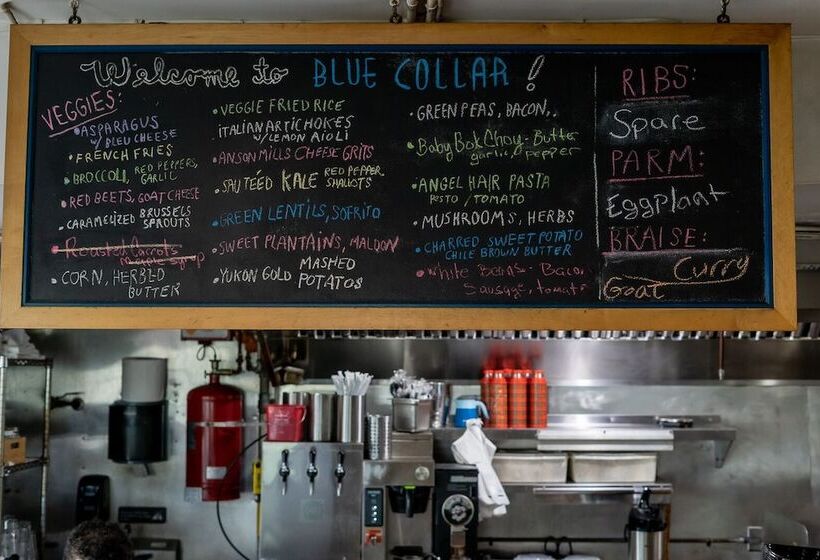 Welcome to BLUE COLLAR!
VEGGIES:
•ASPARAGUS
W/ BLEU CHEESE
•FRENCH FRIES
•BROCCOLI, RED PEPPERS,
GARLIC
•RED BEETS, GOAT CHEESE
•CARAMELIZED BRUSSELS
SPROUTS
•Roasted Carrots
maple syrup
•CORN, HERBED
BUTTER
•VEGGIE FRIED RICE
•ITALIAN ARTICHOKES
W/LEMON AIOLI
•ANSON MILLS CHEESE GRITS
•SAUTÉED KALE RED PEPPER
SHALLOTS
•GREEN LENTILS, SOFRITO
•SWEET PLANTAINS, MALDON
•YUKON GOLD MASHED
POTATOS
•GREEN PEAS, BACON,.
•Baby Bok Choy - Butter
garlic, pepper
•ANGEL HAIR PASTA
PESTO / TOMATO
•MUSHROOMS, HERBS
•CHARRED SWEET POTATO
CHILE BROWN BUTTER
•White Beans - Bacon
Sausage, tomato
RIBS:
Spare
PARM:
Eggplant
BRAISE:
Curry
Goat